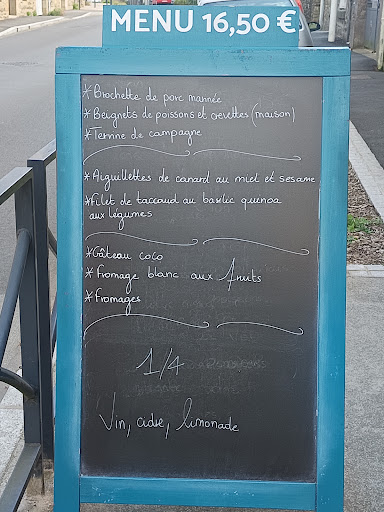 MENU 16,50 €
* Brochette de porc marinée
* Beignets de poissons et crevettes (maison)
* Terrine de campagne
* Aiguillettes de canard au miel et sesame
* Filet de taccaud au basilic quinoa
aux légumes
* Gâteau coco
* Fromage blanc aux fruits
* Fromages
1/4
Vin, cidre, limonade